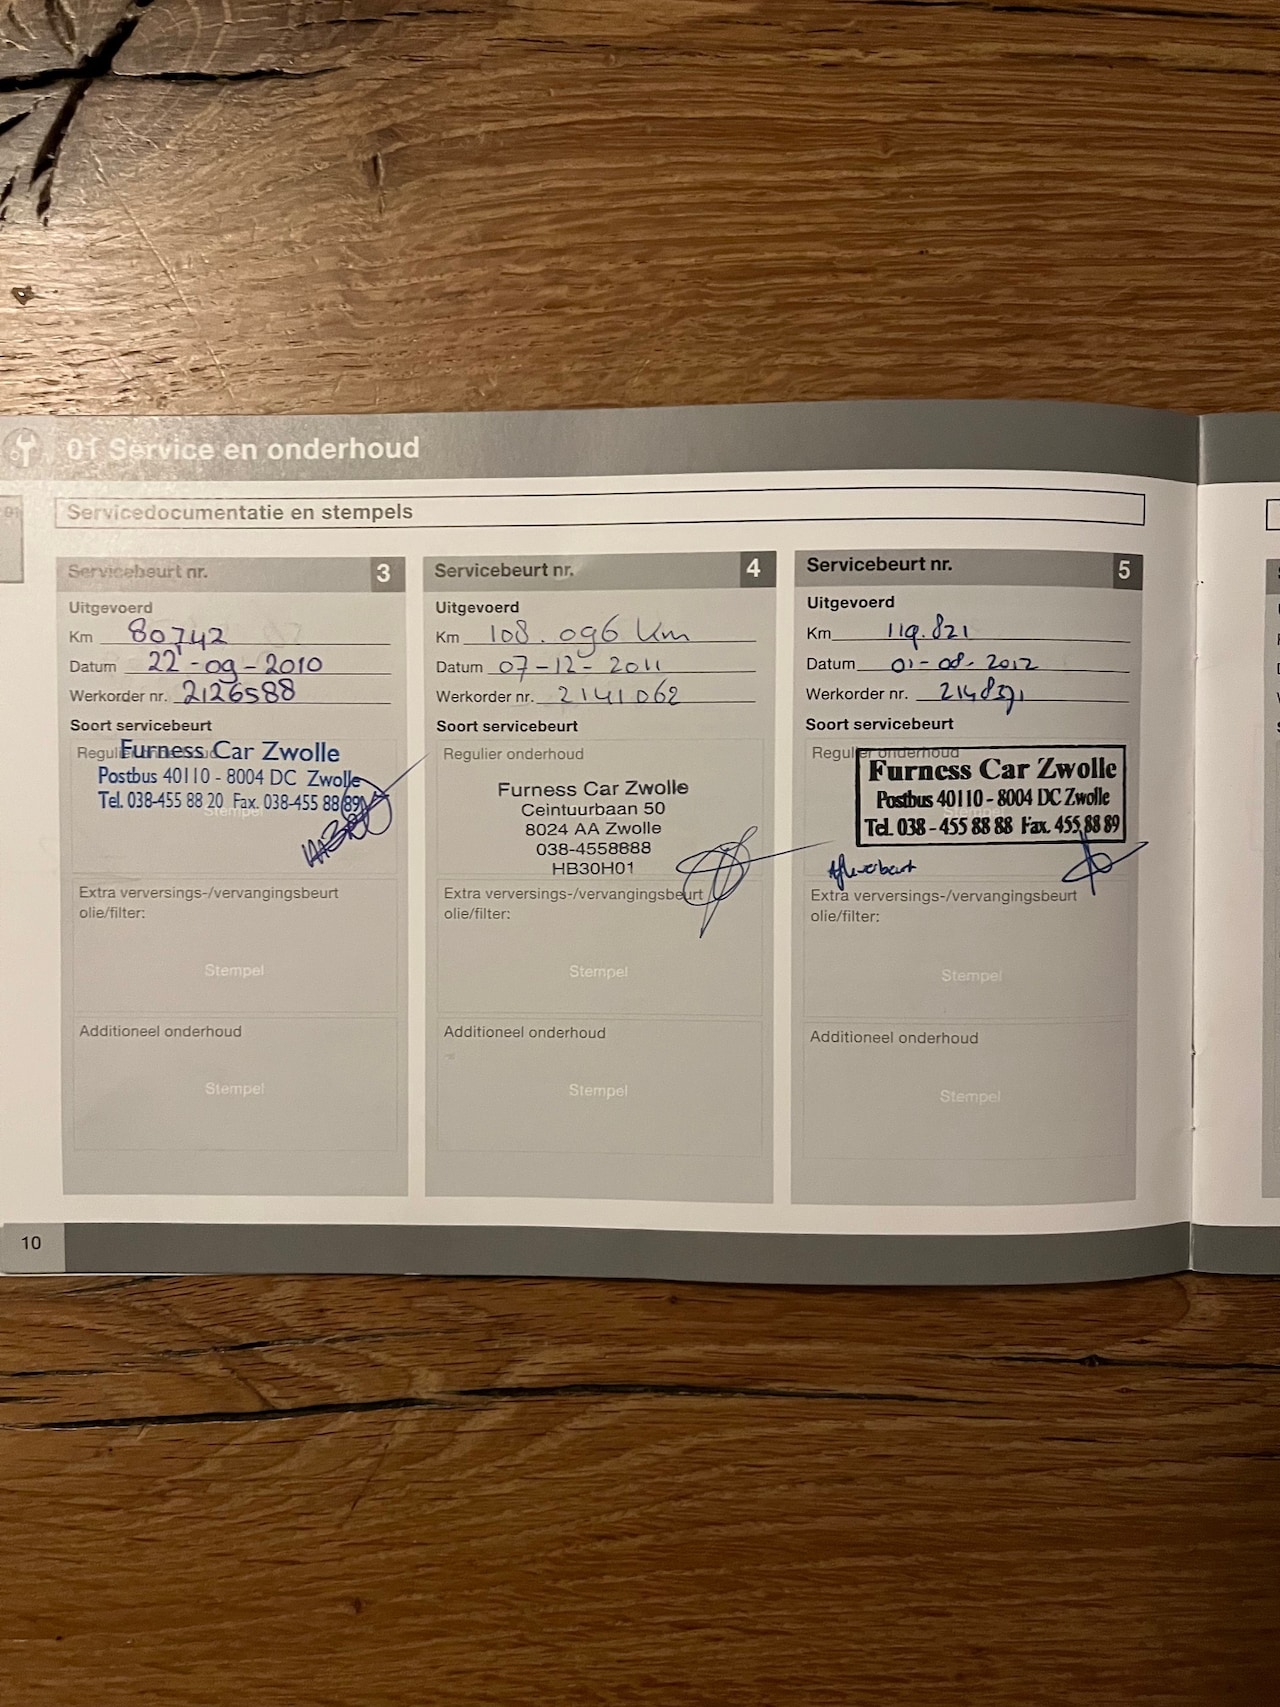 01 Service en onderhoud
01
Servicedocumentatie en stempels
Servicebeurt nr. 3
Uitgevoerd
Km 80742
Datum 22-09-2010
Werkorder nr. 2126588
Soort servicebeurt
Regulier onderhoud
Furness Car Zwolle
Postbus 40110 - 8004 DC Zwolle
Tel. 038-455 88 20 Fax. 038-455 88 89
Stempel
Extra verversings-/vervangingsbeurt
olie/filter:
Stempel
Additioneel onderhoud
Stempel
Servicebeurt nr. 4
Uitgevoerd
Km 108.096 km
Datum 07-12-2011
Werkorder nr. 2141062
Soort servicebeurt
Regulier onderhoud
Furness Car Zwolle
Ceintuurbaan 50
8024 AA Zwolle
038-4558888
HB30H01
Extra verversings-/vervangingsbeurt
olie/filter:
Stempel
Additioneel onderhoud
Stempel
Servicebeurt nr. 5
Uitgevoerd
Km 119.821
Datum 01-08-2012
Werkorder nr.
Soort servicebeurt
Regulier onderhoud
Furness Car Zwolle
Postbus 40110 - 8004 DC Zwolle
Stempel
Tel. 038 - 455 88 88 Fax. 455 88 89
Afleverbeurt
Extra verversings-/vervangingsbeurt
olie/filter:
Stempel
Additioneel onderhoud
Stempel
10